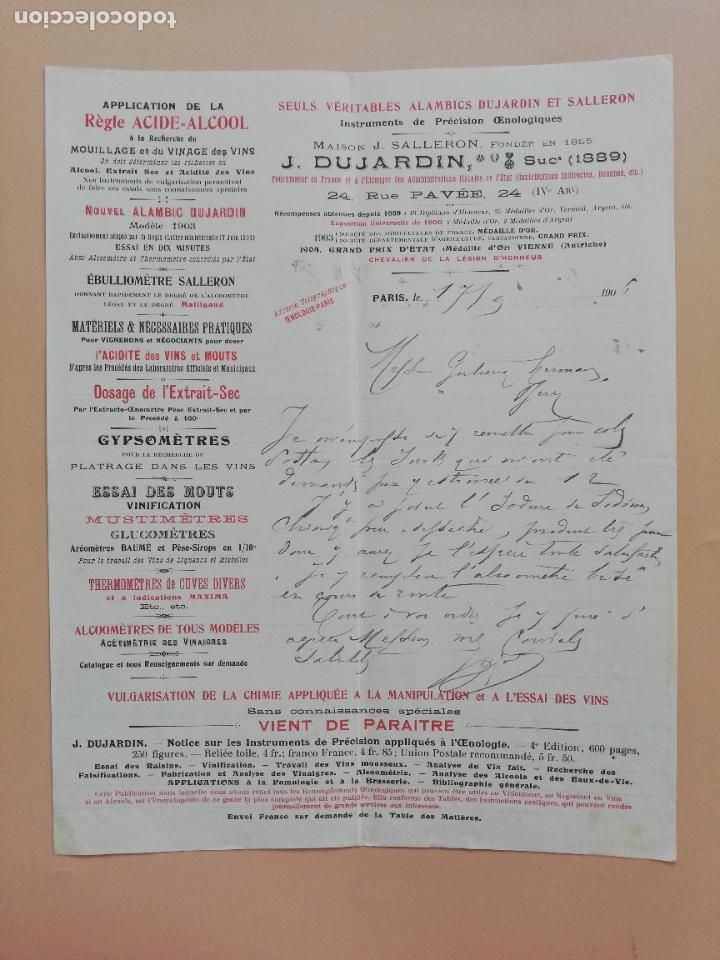 todocoleccion
APPLICATION DE LA
Règle ACIDE=ALCOOL
à la Recherche du
MOUILLAGE et du VINAGE des VINS
Alcool, Extrait Sec et Acidité des Vins
Nos Instruments de vulgarisation permettent
de faire ces essais sans connaissances spéciales
NOUVEL ALAMBIC DUJARDIN
Modèle 1903
Exclusivement adopté par la Régie (Lettre ministérielle 17 Juin 1903)
ESSAI EN DIX MINUTES
Avec Alcoomètre et Thermomètre contrôlés par l'État
ÉBULLIOMÈTRE SALLERON
DONNANT RAPIDEMENT LE DEGRÉ DE L'ALCOOMÈTRE
LÉGAL ET LE DEGRÉ Malligand
MATÉRIELS & NÉCESSAIRES PRATIQUES
Pour VIGNERONS et NÉGOCIANTS pour doser
l'ACIDITÉ des VINS et MOUTS
D'après les Procédés des Laboratoires Officiels et Municipaux
Dosage de l'Extrait-Sec
Par l'Extracto-Œnomètre Pèse Extrait-Sec et par
le Procédé à 100°
GYPSOMÈTRES
POUR LA RECHERCHE DU
PLATRAGE DANS LES VINS
ESSAI DES MOUTS
VINIFICATION
MUSTIMÈTRES
GLUCOMÈTRES
Aréomètres BAUMÉ et Pèse-Sirops en 1/10°
Pour le travail des Vins de Liqueurs et Mistelles
THERMOMÈTRES de CUVES DIVERS
et à indications MAXIMA
Etc., etc.
ALCOOMÈTRES DE TOUS MODÈLES
ACÉTIMÉTRIE DES VINAIGRES
Catalogue et tous Renseignements sur demande
SEULS VÉRITABLES ALAMBICS DUJARDIN ET SALLERON
Instruments de Précision Œnologiques
MAISON J. SALLERON, FONDÉE EN 1855
J. DUJARDIN, Sucr (1889)
Fournisseur en France et à l'Étranger des Administrations fiscales de l'État (Contributions Indirectes, Douanes, etc.)
24, Rue PAVÉE, 24 (IVe Arrt)
Récompenses obtenues depuis 1889 : 16 Diplômes d'Honneur, 25 Médailles d'Or, Vermeil, Argent, etc.
Exposition Universelle de 1900 : Médaille d'Or, 2 Médailles d'Argent
1903 SOCIÉTÉ DES AGRICULTEURS DE FRANCE, MÉDAILLE D'OR.
SOCIÉTÉ DÉPARTEMENTALE D'AGRICULTURE, CARCASSONNE, GRAND PRIX.
1904, GRAND PRIX D'ÉTAT (Médaille d'Or) VIENNE (Autriche)
CHEVALIER DE LA LÉGION D'HONNEUR
Adresse Télégraphique
ŒNOLOGIE-PARIS
PARIS, le 17/9 1906
Gutierrez Hermanos
Jerez
Je m'empresse de
qui m'ont été
12
J'y ai joint l'Iodure de Sodium
produit
j'espère toute satisfaction
l'alcoomètre
en cours de route
J'y
agréer Messieurs mes Cordiales
Salutations
VULGARISATION DE LA CHIMIE APPLIQUÉE A LA MANIPULATION et A L'ESSAI DES VINS
Sans connaissances spéciales
VIENT DE PARAITRE
J. DUJARDIN. — Notice sur les Instruments de Précision appliqués à l'Œnologie. — 4e Edition, 600 pages,
250 figures. — Reliée toile, 4 fr.; franco France, 4 fr. 85; Union Postale recommandé, 5 fr. 50.
Essai des Raisins. — Vinification. — Travail des Vins mousseux. — Analyse du Vin fait. — Recherche des
Falsifications. — Fabrication et Analyse des Vinaigres. — Alcoométrie. — Analyse des Alcools et des Eaux-de-Vie.
APPLICATIONS à la Pomologie et à la Brasserie. — Bibliographie générale.
Cette Publication dans laquelle nous avons réuni tous les Renseignements Œnologiques qui peuvent être utiles au Viticulteur, au Négociant en Vins
et en Alcools, est l'Encyclopédie de ce genre la plus complète qui ait été publiée. Elle renferme des Tables, des Instructions pratiques, qui peuvent rendre
journellement de grands services aux intéressés.
Envoi Franco sur demande de la Table des Matières.